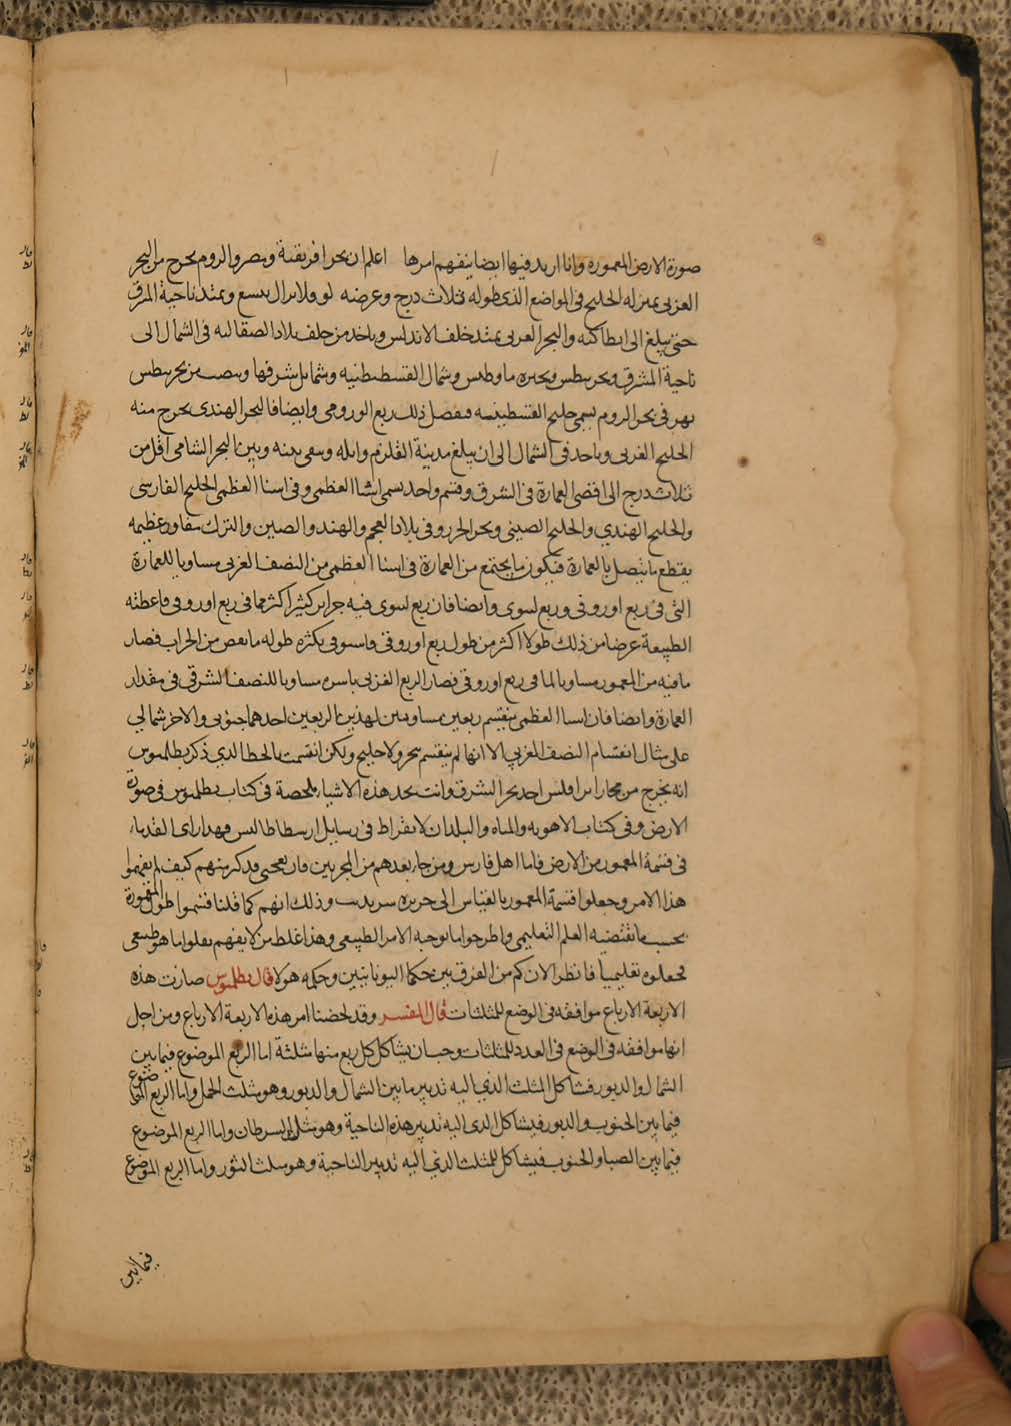 صورة الارض المعموره وانا اريد فيها ايضا يتفهم امرها اعلم ان بحر افريقية ومصر والروم يخرج من البحر
الغربى بمنزله الخليج فى المواضع الذى طوله ثلاث درج وعرضه ولا يزال يتسع ويمتد ناحية المشرق
حتى يبلغ الى انطاكيه والبحر الغربى يمتد خلف الاندلس وياخد من خلف بلاد الصقالبه فى الشمال الى
ناحية المشرق وبحر بنطس وبحيره ماوطيس وشمال القسطنطنيه وشمايل شرقها وينصب من بحر بنطس
نهر فى بحر الروم يسمى خليج القسطنطينيه فيفصل ذلك ربع اوروفى وايضا فالبحر الهندى يخرج منه
الخليج الغربى وياخد فى الشمال الى ان يبلغ مدينة القلزم وايله وبقى بينه وبين البحر الشامى اقل من
ثلاث درج الى اقصى العمارة فى الشرق وقسم واحد يسمى اسيا العظمى وفى اسيا العظمى الخليج الفارسى
والخليج الهندي والخليج الصينى وبحر الخزر وفى بلاد العجم والهند والصين والترك مفاوز عظيمه
يقطع ما يتصل بالعمارة فيكون ما يجتمع من العمارة فى اسيا العظمى من النصف الغربى مساويا للعمارة
التى فى ربع اوروفى وربع لسوى وايضا فان ربع لسوى فيه جزاير كثيرا اكثر مما فى ربع اوروفى فاعطته
الطبيعة عرضا من ذلك طولا اكثر من طول ربع اوروفى فاستوفى بكثره طوله ما نقص من الخراب فصار
ما فيه من المعمور مساويا لما فى ربع اوروفى فصار الربع الغربى باسره مساويا للنصف الشرقى فى مقدار
العمارة وايضا فان اسيا العظمى ينقسم ربعين مساويين لهذين الربعين احدهما جنوبى والاخر شمالي
على مثال انقسام النصف المغربي الا انها لم ينقسم ببحر ولا خليج ولكن انقسمت بالخط الذي ذكر بطلميوس
انه يخرج من احد بحر الشرق وانت تجد هذه الاشياء ملخصة فى كتاب بطلميوس فى صورة
الارض وفى كتاب الاهويه والمياه والبلدان لابقراط فى رسايل ارسطاطاليس فهدا راى القدماء
فى قسمة المعمور من الارض فاما اهل فارس ومن جاء بعدهم من المنجمين فان يحيى قد ذكر منهم كيف لم يفهموا
هذا الامر وجعلوا قسمة المعمور بالقياس الى جزيره سرنديب وذلك انهم كما قلنا قسموا طول المعمورة
بحسب ما تقتضيه العلم التعليمى واطرحوا ما توجبه الامر الطبيعى وهذا غلط من لا يفهم نقلوا ما هو طبيعى
فجعلوه تعليميا فانظر الان كم من الفرق بين حكما اليونانيين وحكمه هولا قال بطلميوس صارت هذه
الاربعة الارباع موافقه فى الوضع للمثلثات قال المفسر وقد لخصنا امر هذه الاربعة الارباع ومن اجل
انها موافقه فى الوضع فى العدد للمثلثات وجب ان يشاكل كل ربع منها مثلثة اما الربع الموضوع فيما بين
الشمال والدبور فشاكل المثلث الذي اليه تدبير ما بين الشمال والدبور وهو مثلث الحمل واما الربع الموضوع
فيما بين الجنوب والدبور فيشاكل الذى اليه تدبير هذه الناحية وهو مثلث السرطان واما الربع الموضوع
فيما بين الصبا والجنوب فيشاكل المثلث الذي اليه تدبير الناحية وهو مثلث الثور واما الربع الموضوع
فيما بين